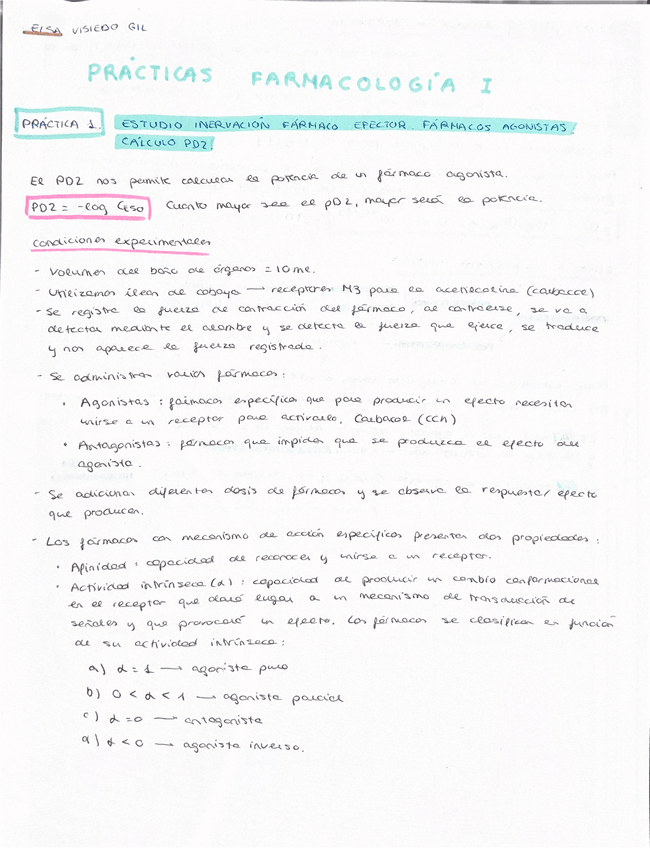 ELSA VISIEDO GIL
PRÁCTICAS FARMACOLOGÍA I
PRÁCTICA 1. ESTUDIO INERVACIÓN FÁRMACO EFECTOR. FÁRMACOS AGONISTAS.
CÁLCULO PD2.
El PD2 nos permite calcular la potencia de un fármaco agonista.
PD2 = -log CE50 Cuanto mayor sea el pD2, mayor será la potencia.
Condiciones experimentales
- Volumen del baño de órganos = 10 ml.
- Utilizamos íleon de cobaya → receptores M3 para la acetilcolina (carbacol)
- Se registra la fuerza de contracción del fármaco, al contraerse, se va a
detectar mediante el alambre y se detecta la fuerza que ejerce, se traduce
y nos aparece la fuerza registrada.
- Se administran varios fármacos:
• Agonistas: fármacos específicos que para producir un efecto necesitan
unirse a un receptor para activarlo. Carbacol (CCh)
• Antagonistas: fármacos que impiden que se produzca el efecto del
agonista.
- Se adicionan diferentes dosis de fármacos y se observa la respuesta/efecto
que producen.
- Los fármacos con mecanismo de acción específicos presentan dos propiedades:
• Afinidad: capacidad de reconocer y unirse a un receptor.
• Actividad intrínseca (α): capacidad de producir un cambio conformacional
en el receptor que dará lugar a un mecanismo de transducción de
señales y que provocará un efecto. Los fármacos se clasifican en función
de su actividad intrínseca:
a) α = 1 → agonista puro
b) 0 < α < 1 → agonista parcial
c) α = 0 → antagonista
d) α < 0 → agonista inverso.